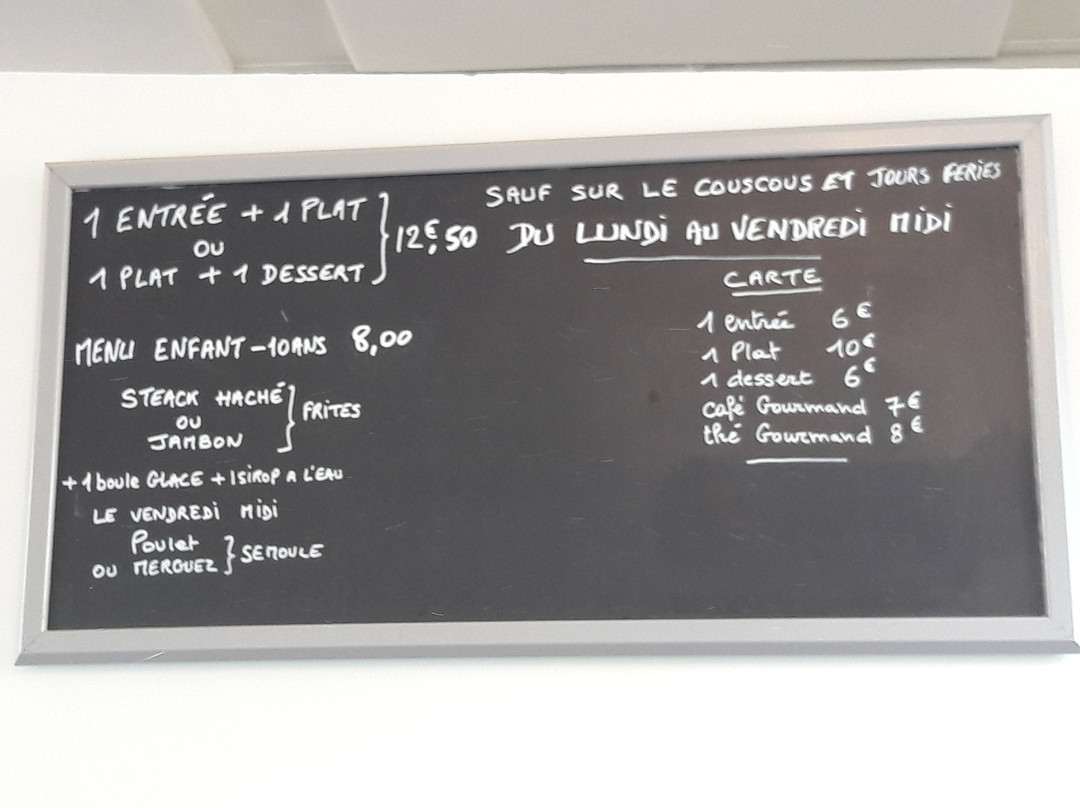 1 ENTRÉE + 1 PLAT
OU
1 PLAT + 1 DESSERT
12€,50
SAUF SUR LE COUSCOUS ET JOURS FERIES
DU LUNDI AU VENDREDI MIDI
MENU ENFANT -10ANS 8,00
STEACK HACHÉ
OU
JAMBON
FRITES
+ 1 boule GLACE + 1 SIROP A L'EAU
LE VENDREDI MIDI
Poulet
OU MERGUEZ
SEMOULE
CARTE
1 entrée 6€
1 Plat 10€
1 dessert 6€
café Gourmand 7€
thé Gourmand 8€